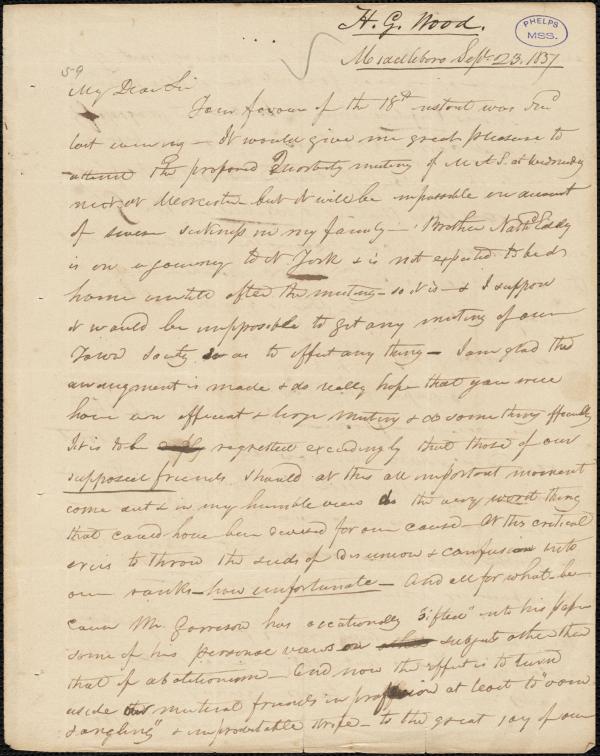 H. G. Wood.
PHELPS
MSS.
Middleboro Sept. 23. 1837
59
My Dear Sir
Your favour of the 18th instant was recd
last evening — It would give me great pleasure to
attend the proposed Quarterly meeting of M A S. at Wednesday
next at Worcester — but it will be impossible on account
of severe sickness in my family — Brother Nathl Eddy
is on a journey to N. York & is not expected to be
home untill after the meeting — so it is — & I suppose
it would be impossible to get any meeting of our
Town Society so as to effect any thing — I am glad the
arrangment is made & do really hope that you will
have an efficient & large meeting & do something effectually
It is to be regretted exceedingly that those of our
supposed friends should at this all important moment
come out & in my humble view do the very worst thing
that could have been devised for our cause — At this critical
crisis to throw the seeds of disunion & confusion into
our ranks — how unfortunate — And all for what — be-
cause Mr. Garrison has occationally "sifted" into his paper
some of his personal views on subjects other than
that of abolitionism — And now the effect is to turn
aside mutual friends in profession at least to "vain
Jangling" & unprofitable strife — to the great joy of our